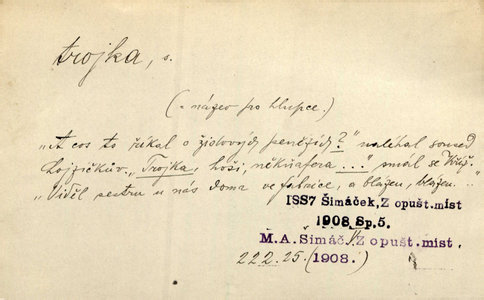 trojka, s.
(= název pro hlupce.)
„A cos to říkal o židových penězích?" naléhal soused
Lojzíčkův. „Trojka, hoši, . . . . ." smál se Kříž.
„Viděl sestru u nás doma ve fabrice, a blázen, blázen. . .
1SS7 Šimáček, Z opušt. míst
1908 Sp. 5.
M. A. Šimáč., Z opušt. míst.
222. 25. (1908.)